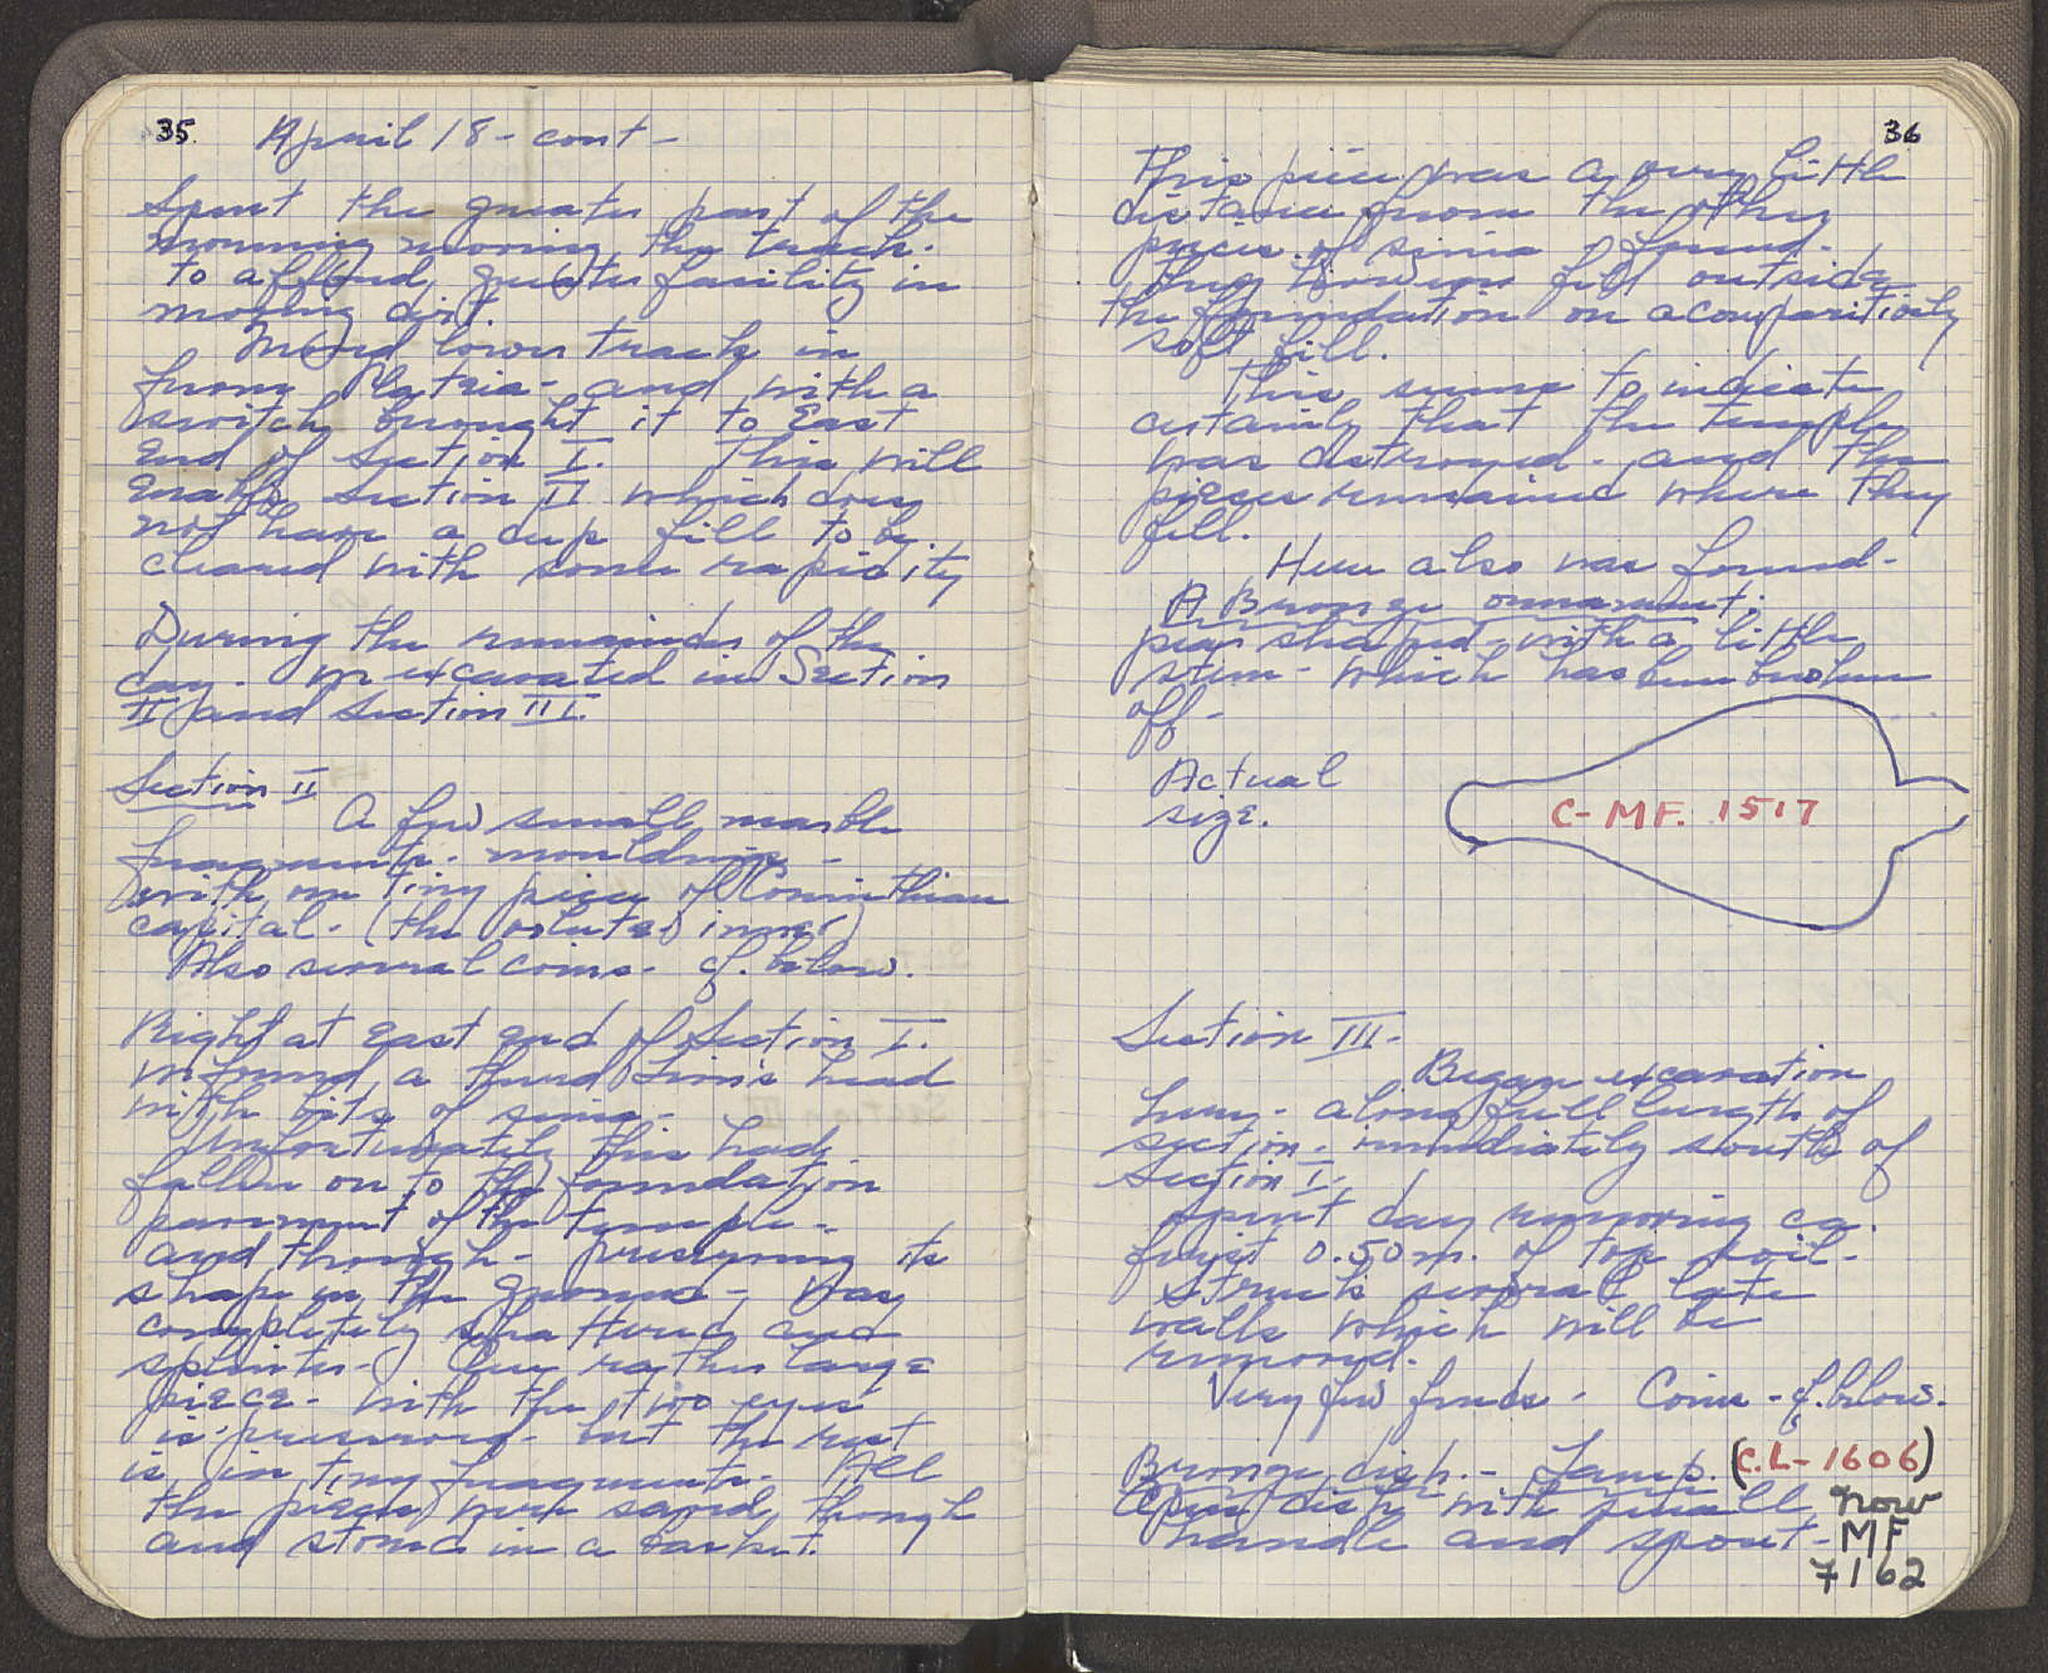 35.
April 18 - cont -
Spent the greater part of the
morning moving the track.
to afford greater facility in
moving dirt.
Moved lower track in
from Plateia - and with a
switch brought it to East
End of Section I. This will
enable Section II which does
not have a deep fill to be
cleared with some rapidity
During the remainder of the
day - we excavated in Section
II and Section III.
Section II
A few small marble
fragments - mouldings -
with one tiny piece of Corinthian
capital - (the volutes inner)
Also several coins - cf. below.
Right at East end of Section I.
we found a third Lion's head
with bits of sima -
Unfortunately this had
fallen on to the foundation
pavement of the temple -
and though - preserving its
shape in the ground - was
completely shattered and
splinter - One rather large
piece - with the two eyes
is preserved - but the rest
is in tiny fragments - All
the pieces were saved, though
and stored in a basket.
36
This piece was a very little
distance from the other
pieces of sima found -
they however fell outside
the foundation on a comparitively
soft fill.
This seems to indicate
certainly that the temple
was destroyed - and the
pieces remained where they
fell.
Here also was found -
A Bronze ornament.
pear shaped - with a little
stem - which has been broken
off -
Actual
size.
C- MF. 1517
Section III -
Began excavation
here - along full length of
section - immediately south of
Section I.
Spent day removing ca.
first 0.50 m. of top soil -
Struck several late
walls which will be
removed.
Very few finds - Coins - cf. below.
Bronze dish. - Lamp. (C.L- 1606)
Open dish with small now
handle and spout - MF
7162